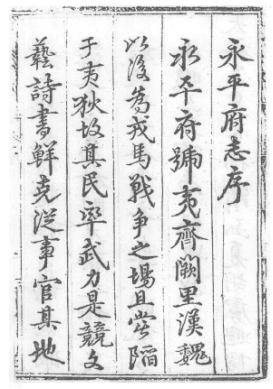 永平府志序
永平府號夷齊闕里漢魏
以後為戎馬戰爭之場且嘗陷
于夷狄故其民率武力是競文
藝詩書鮮克從事官其地